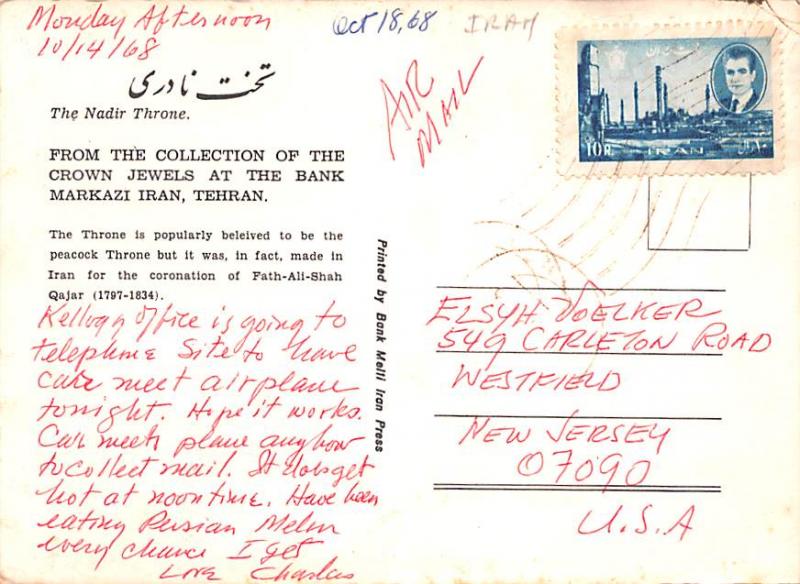 Monday Afternoon
10/14/68
Oct 18, 68
IRAN
AIR
MAIL
تخت نادری
The Nadir Throne.
FROM THE COLLECTION OF THE
CROWN JEWELS AT THE BANK
MARKAZI IRAN, TEHRAN.
The Throne is popularly beleived to be the
peacock Throne but it was, in fact, made in
Iran for the coronation of Fath-Ali-Shah
Qajar (1797-1834).
Kellogg office is going to
telephone Site to have
car meet airplane
tonight. Hope it works.
Car meets plane anyhow
to collect mail. It does get
hot at noontime. Have been
eating Persian Melon
every chance I get
Love Charles
Printed by Bank Melli Iran Press
10R.
IRAN
ELSYH VOELKER
549 CARLETON ROAD
WESTFIELD
NEW JERSEY
07090
U.S.A